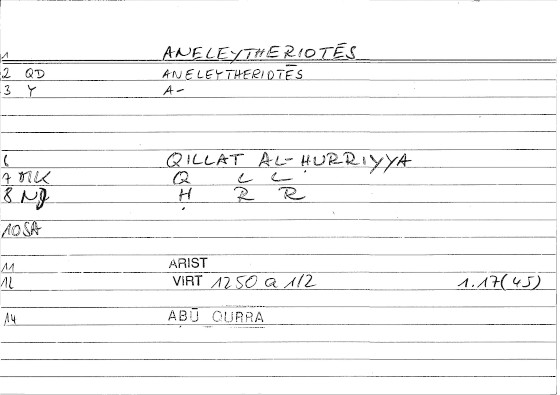 1 ANELEYTHERIOTĒS
2 QD ANELEYTHERIOTĒS
3 Y A-
6 QILLAT AL-ḤURRIYYA
7 MK Q L L
8 NJ Ḥ R R
10 SA
11 ARIST
12 VIRT 1250 a 1/2 1.17(45)
14 ABŪ QURRA